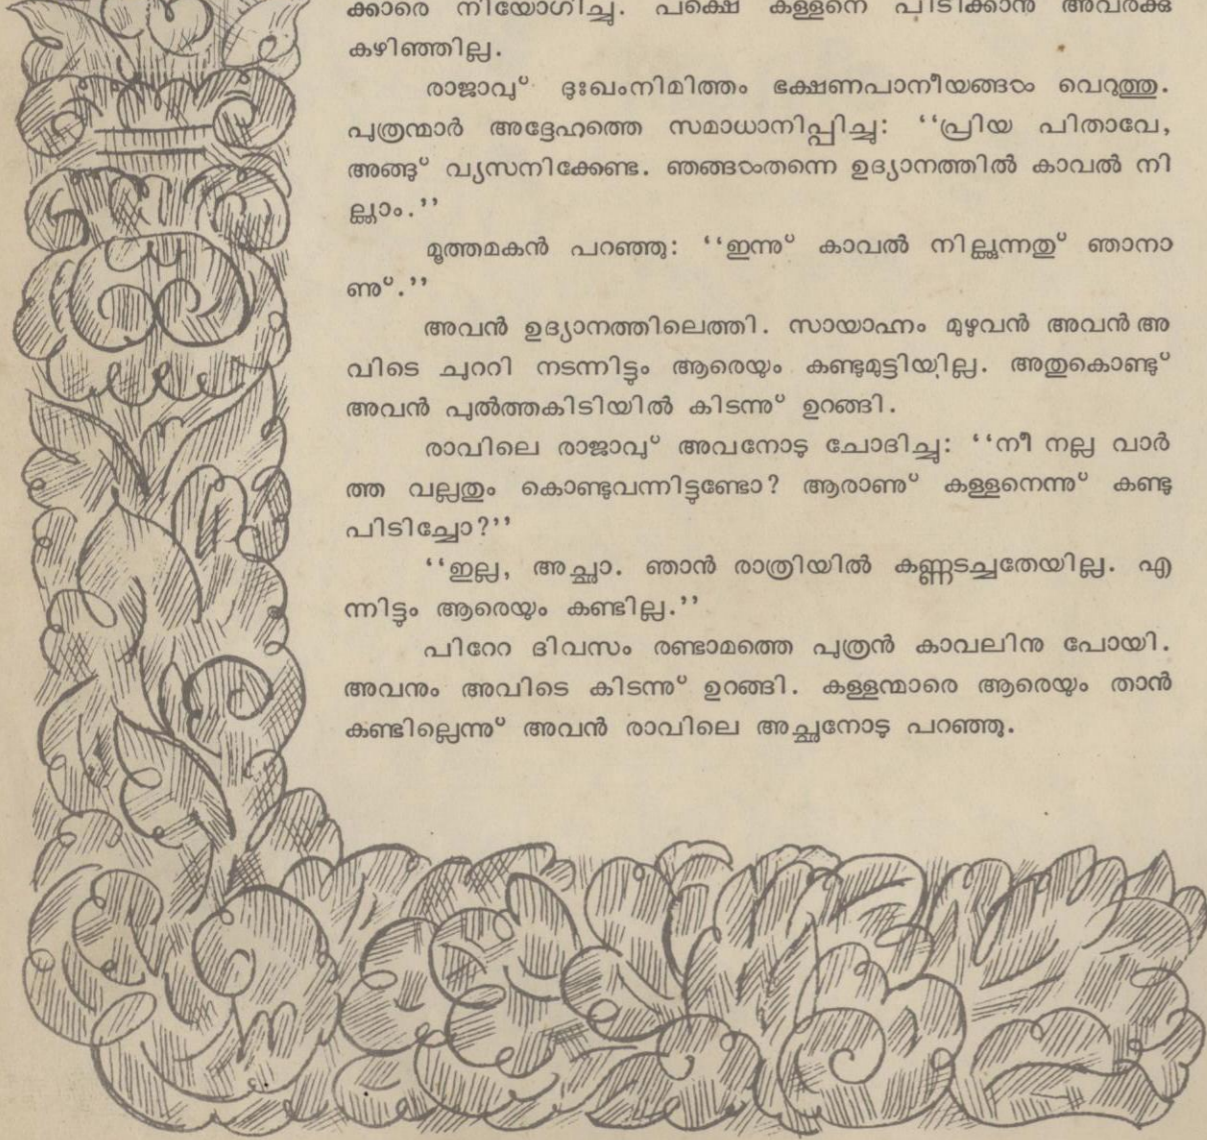 ക്കാരെ നിയോഗിച്ചു. പക്ഷെ കള്ളനെ പിടിക്കാൻ അവർക്കു
കഴിഞ്ഞില്ല.
രാജാവു് ദുഃഖംനിമിത്തം ഭക്ഷണപാനീയങ്ങൾ വെറുത്തു.
പുത്രന്മാർ അദ്ദേഹത്തെ സമാധാനിപ്പിച്ചു: ‘‘പ്രിയ പിതാവേ,
അങ്ങു് വ്യസനിക്കേണ്ട. ഞങ്ങൾതന്നെ ഉദ്യാനത്തിൽ കാവൽ നി
ല്ക്കാം.’’
മൂത്തമകൻ പറഞ്ഞു: ‘‘ഇന്നു് കാവൽ നില്ക്കുന്നതു് ഞാനാ
ണു്.’’
അവൻ ഉദ്യാനത്തിലെത്തി. സായാഹ്നം മുഴുവൻ അവൻ അ
വിടെ ചുററി നടന്നിട്ടും ആരെയും കണ്ടുമുട്ടിയില്ല. അതുകൊണ്ടു്
അവൻ പുൽത്തകിടിയിൽ കിടന്നു് ഉറങ്ങി.
രാവിലെ രാജാവു് അവനോടു ചോദിച്ചു: ‘‘നീ നല്ല വാർ
ത്ത വല്ലതും കൊണ്ടുവന്നിട്ടുണ്ടോ? ആരാണു് കള്ളനെന്നു് കണ്ടു
പിടിച്ചോ?’’
‘‘ഇല്ല, അച്ഛാ. ഞാൻ രാത്രിയിൽ കണ്ണടച്ചതേയില്ല. എ
ന്നിട്ടും ആരെയും കണ്ടില്ല.’’
പിറേറ ദിവസം രണ്ടാമത്തെ പുത്രൻ കാവലിനു പോയി.
അവനും അവിടെ കിടന്നു് ഉറങ്ങി. കള്ളന്മാരെ ആരെയും താൻ
കണ്ടില്ലെന്നു് അവൻ രാവിലെ അച്ഛനോടു പറഞ്ഞു.